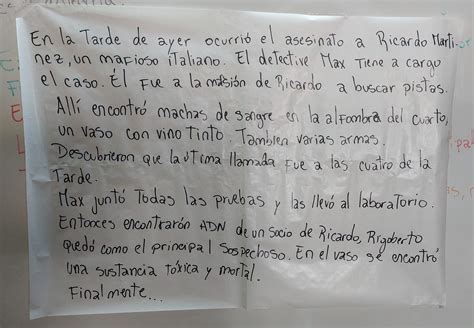 En la Tarde de ayer ocurrió el asesinato a Ricardo Marti-
nez, un mafioso italiano. El detective Max Tiene a cargo
el caso. Él fue a la masión de Ricardo a buscar pistas.
Allí encontró machas de sangre en la alfombra del cuarto,
un vaso con vino Tinto. Tambien varias armas.
Descubrieron que la utima llamada fue a las cuatro de la
Tarde.
Max juntó Todas las pruebas y las llevó al laboratorio.
Entonces encontrarón ADN de un socio de Ricardo, Rigoberto
quedó como el principal sospechoso. En el vaso se encontró
una sustancia tóxica y mortal.
Finalmente...